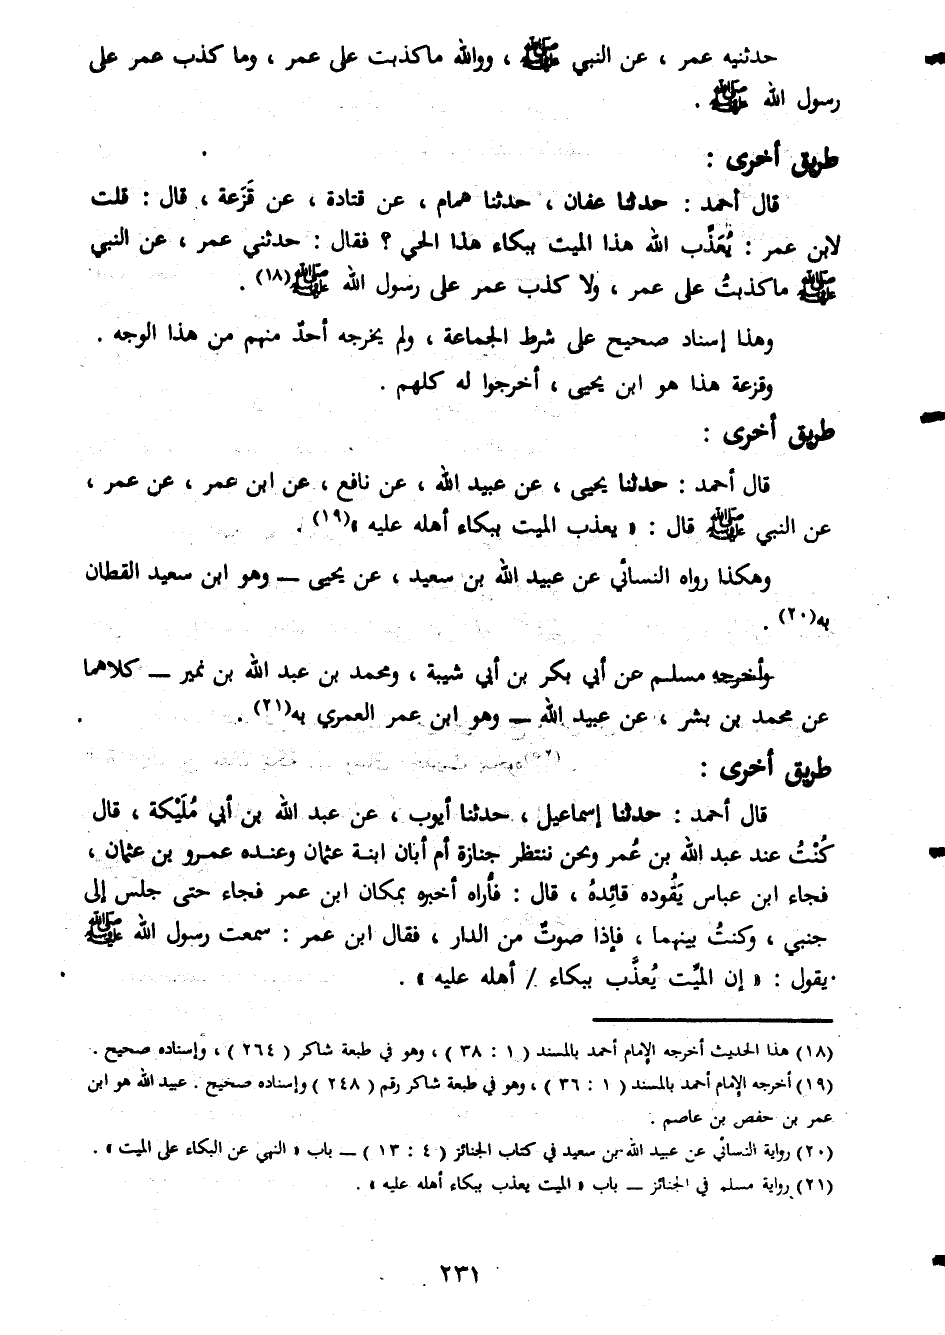 حدثنيه عمر ، عن النبي ﷺ ، ووالله ماكذبت على عمر ، وما كذب عمر على
رسول الله ﷺ .
طريق أخرى :
قال أحمد : حدثنا عفان ، حدثنا همام ، عن قتادة ، عن قَزَعة ، قال : قلت
لابن عمر : يُعَذَّب الله هذا الميت ببكاء هذا الحي ؟ فقال : حدثني عمر ، عن النبي
ﷺ ماكذبتُ على عمر ، ولا كذب عمر على رسول الله ﷺ(١٨) .
وهذا إسناد صحيح على شرط الجماعة ، ولم يخرجه أحدٌ منهم من هذا الوجه .
وقزعة هذا هو ابن يحيى ، أخرجوا له كلهم .
طريق أخرى :
قال أحمد : حدثنا يحيى ، عن عبيد الله ، عن نافع ، عن ابن عمر ، عن عمر ،
عن النبي ﷺ قال : « يعذب الميت ببكاء أهله عليه »(١٩) .
وهكذا رواه النسائي عن عبيد الله بن سعيد ، عن يحيى ــ وهو ابن سعيد القطان
به(٢٠) .
وأخرجه مسلم عن أبي بكر بن أبي شيبة ، ومحمد بن عبد الله بن نمير ــ كلاهما
عن محمد بن بشر ، عن عبيد الله ــ وهو ابن عمر العمري به(٢١) .
طريق أخرى :
قال أحمد : حدثنا إسماعيل ، حدثنا أيوب ، عن عبد الله بن أبي مُلَيْكة ، قال
كُنْتُ عند عبد الله بن عُمر ونحن ننتظر جنازة أم أبان ابنة عثمان وعنده عمرو بن عثمان ،
فجاء ابن عباس يَقُوده قائِدهُ ، قال : فأُراه أخبره بمكان ابن عمر فجاء حتى جلس إلى
جنبي ، وكنتُ بينهما ، فإذا صوتٌ من الدار ، فقال ابن عمر : سمعت رسول الله ﷺ
يقول : « إن الميِّت يُعذَّب ببكاء / أهله عليه » .
(١٨) هذا الحديث أخرجه الإمام أحمد بالمسند ( ١ : ٣٨ ) ، وهو في طبعة شاكر ( ٢٦٤ ) ، وإسناده صحيح .
(١٩) أخرجه الإمام أحمد بالمسند ( ١ : ٣٦ ) ، وهو في طبعة شاكر رقم ( ٢٤٨ ) وإسناده صحيح . عبيد الله هو ابن
عمر بن حفص بن عاصم .
(٢٠) رواية النسائي عن عبيد الله بن سعيد في كتاب الجنائز ( ٤ : ١٣ ) ــ باب « النهي عن البكاء على الميت » .
(٢١) رواية مسلم في الجنائز ــ باب « الميت يعذب ببكاء أهله عليه » .
٢٣١